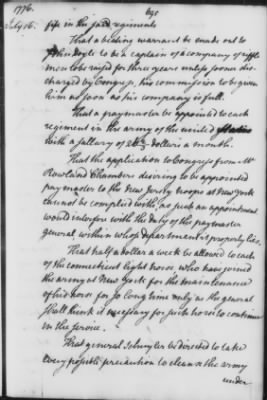 1776.
695
July 16.
fife in the said regiments
That a blasing warrant be made out to
John Doyle to be a captain of a company of riffle
men to be raised for three years unless sooner dis-
charged by Congress, his commission to be given
him as soon as his company is full.
That a paymaster be appointed to each
regiment in the army of the united States
with a sallary of dollars a month.
That the application to Congress from Mr
Rowland Chambers desiring to be appointed
paymaster to the New Jersey troops at New york
cannot be complied with, as such an appointment
would interfere with the duty of the paymaster
general, within whose department it properly lies.
That half a dollar a week be allowed to each
of the connecticut light horse, who have joined
the army at New York for the maintenance
of his horse for so long time only as the general
shall think it necessary for such horse to continue
in the service.
That general Schuyler be directed to take
every possible precaution to cleanse the army
under